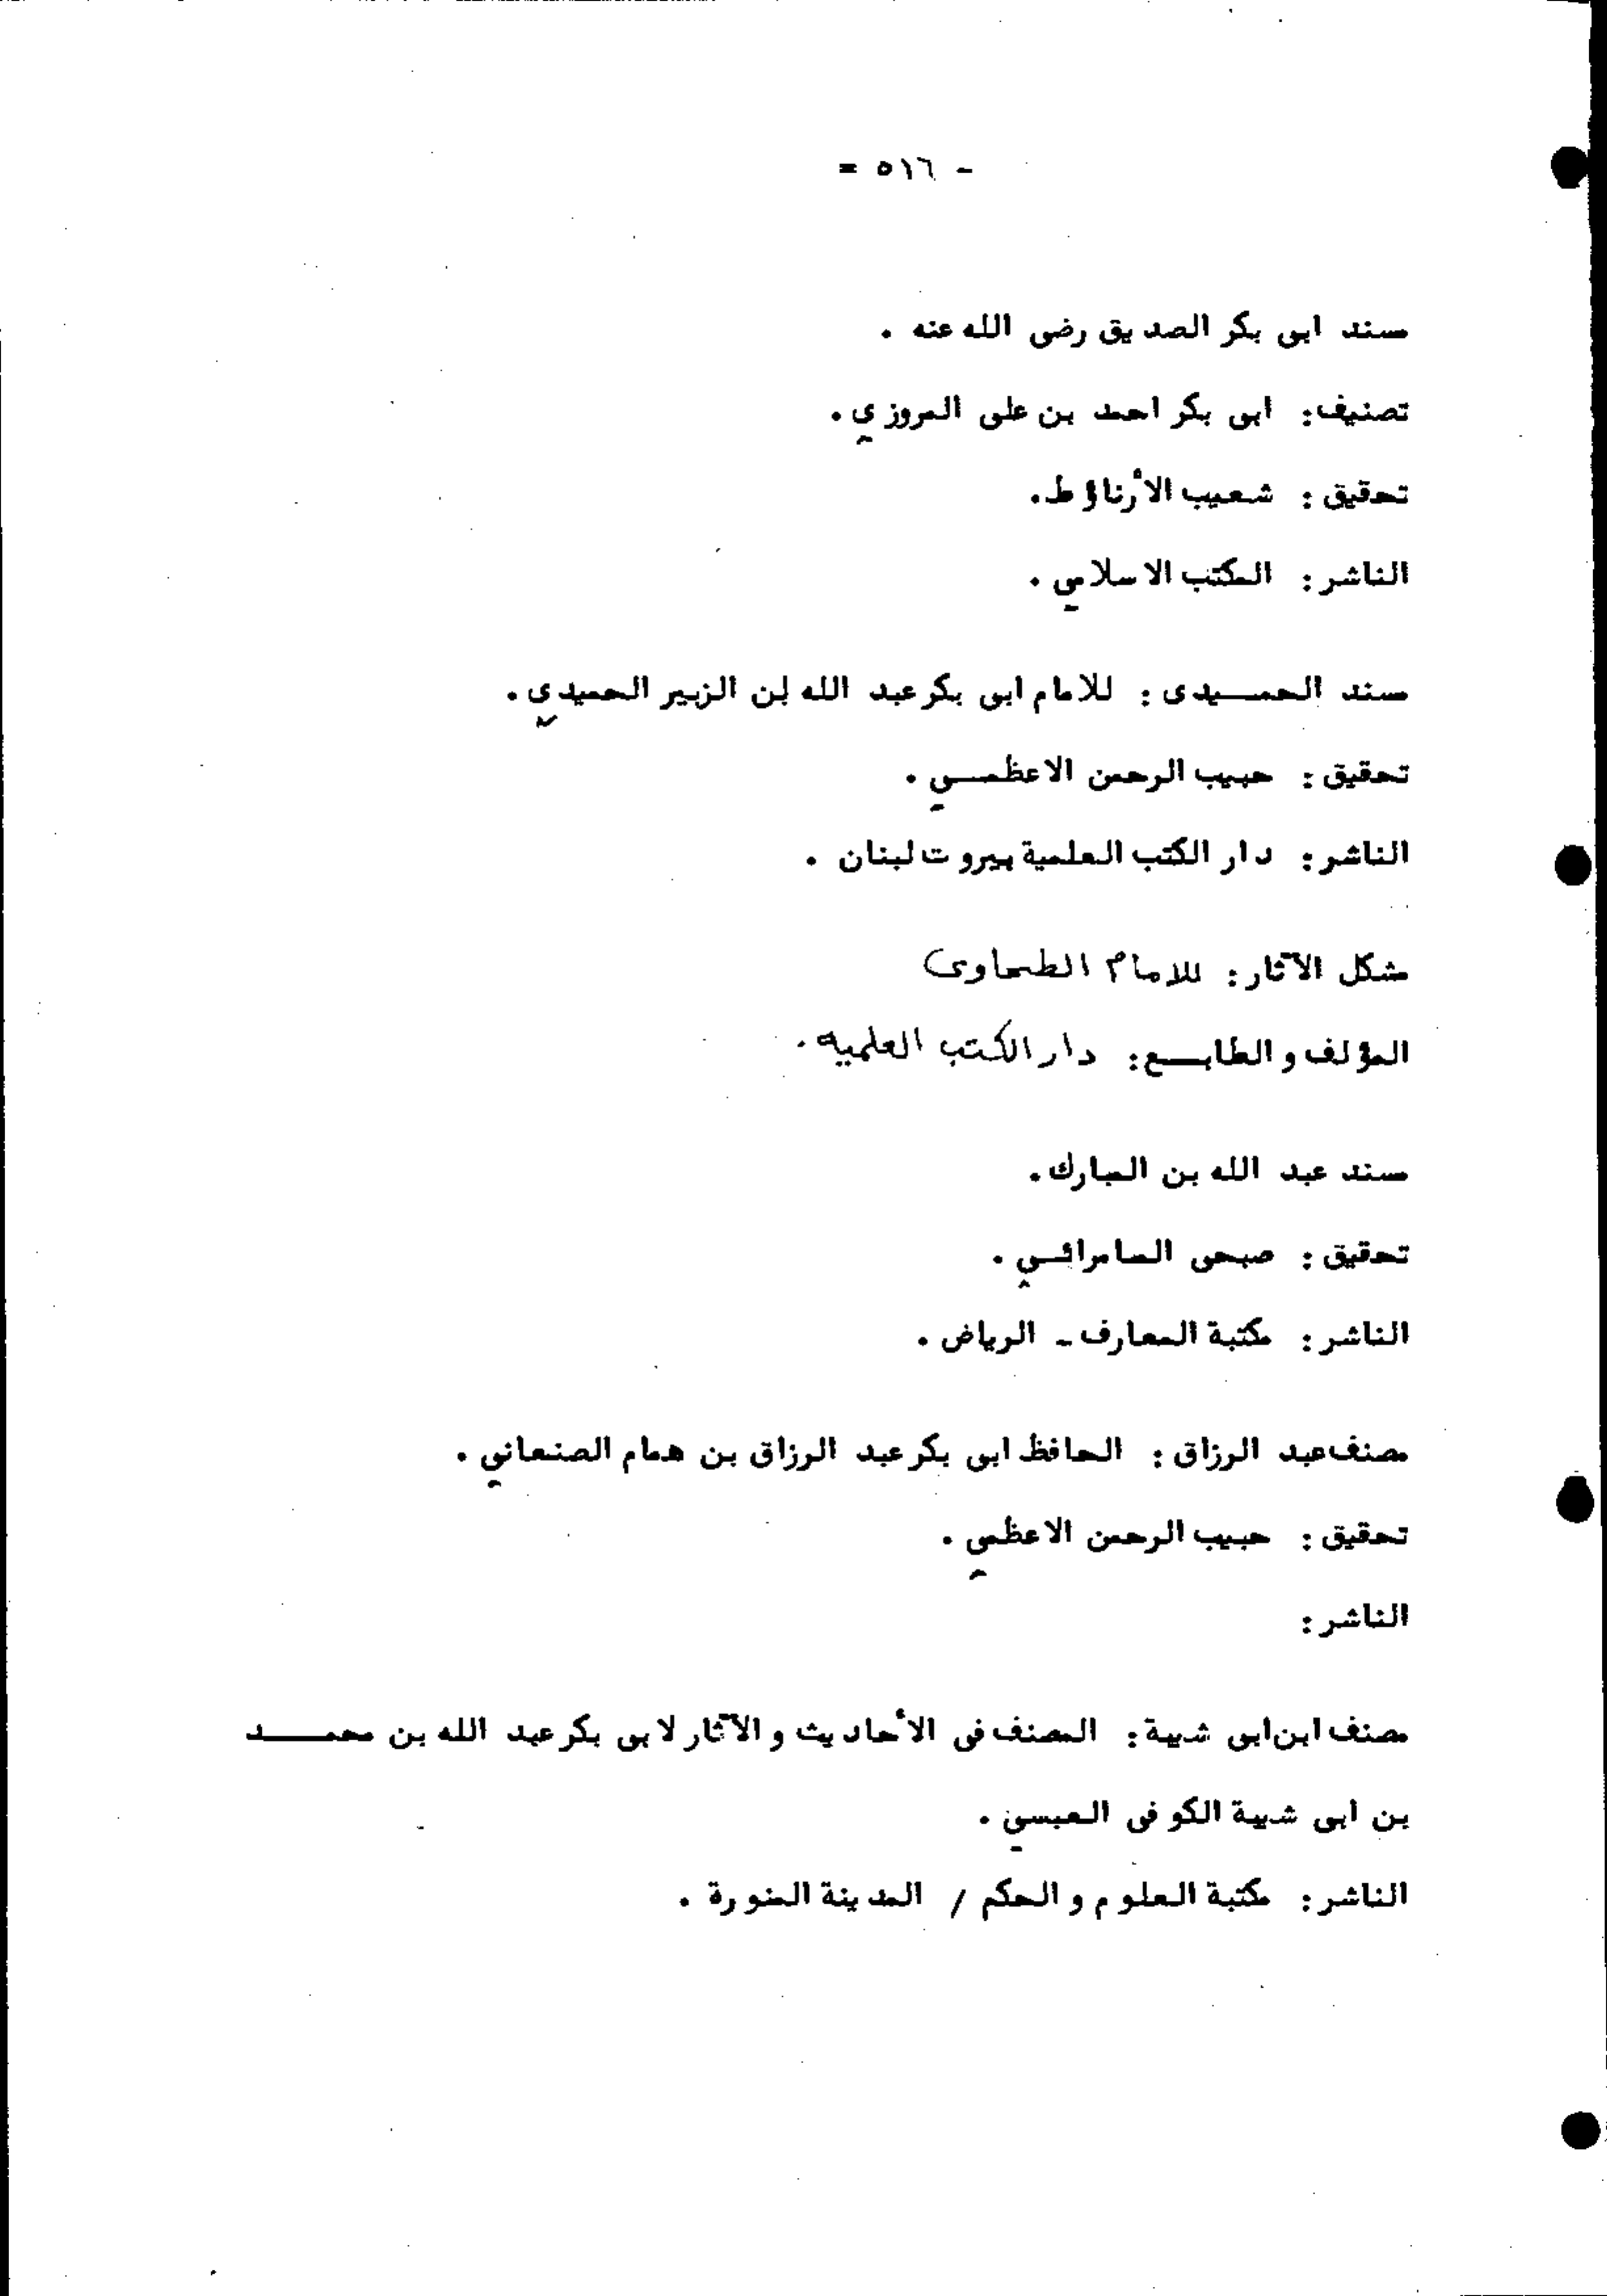 - ٥١٦ =
مسند ابى بكر الصديق رضى الله عنه .
تصنيف: ابى بكر احمد بن على المروزي .
تحقيق : شعيب الأرناؤط .
الناشر : المكتب الاسلامي .
مسند الحمـــيدى : للامام ابى بكر عبد الله بن الزبير الحميدي .
تحقيق : حبيب الرحمن الاعظمـــي .
الناشر : دار الكتب العلمية بيروت لبنان .
مشكل الآثار : للامام الطحاوى
المؤلف والطابـــع : دار الكتب العلميه .
مسند عبد الله بن المبارك .
تحقيق : صبحى السامرائـــي .
الناشر : مكتبة المعارف - الرياض .
مصنف عبد الرزاق : الحافظ ابى بكر عبد الرزاق بن همام الصنعاني .
تحقيق : حبيب الرحمن الاعظمي .
الناشر :
مصنف ابن ابى شيبة : المصنف فى الأحاديث والآثار لابى بكر عبد الله بن محمـــد
بن ابى شيبة الكوفى العبسي .
الناشر : مكتبة العلوم والحكم / المدينة المنورة .